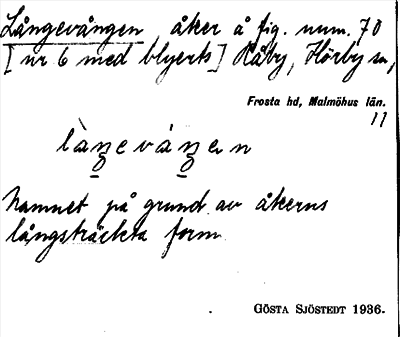 Långevången, åker å fig. num. 70
[nr 6 med blyerts] Råby, Hörby sn,
Frosta hd, Malmöhus län.
11
Namnet på grund av åkerns
långsträckta form
GÖSTA SJÖSTEDT 1936.